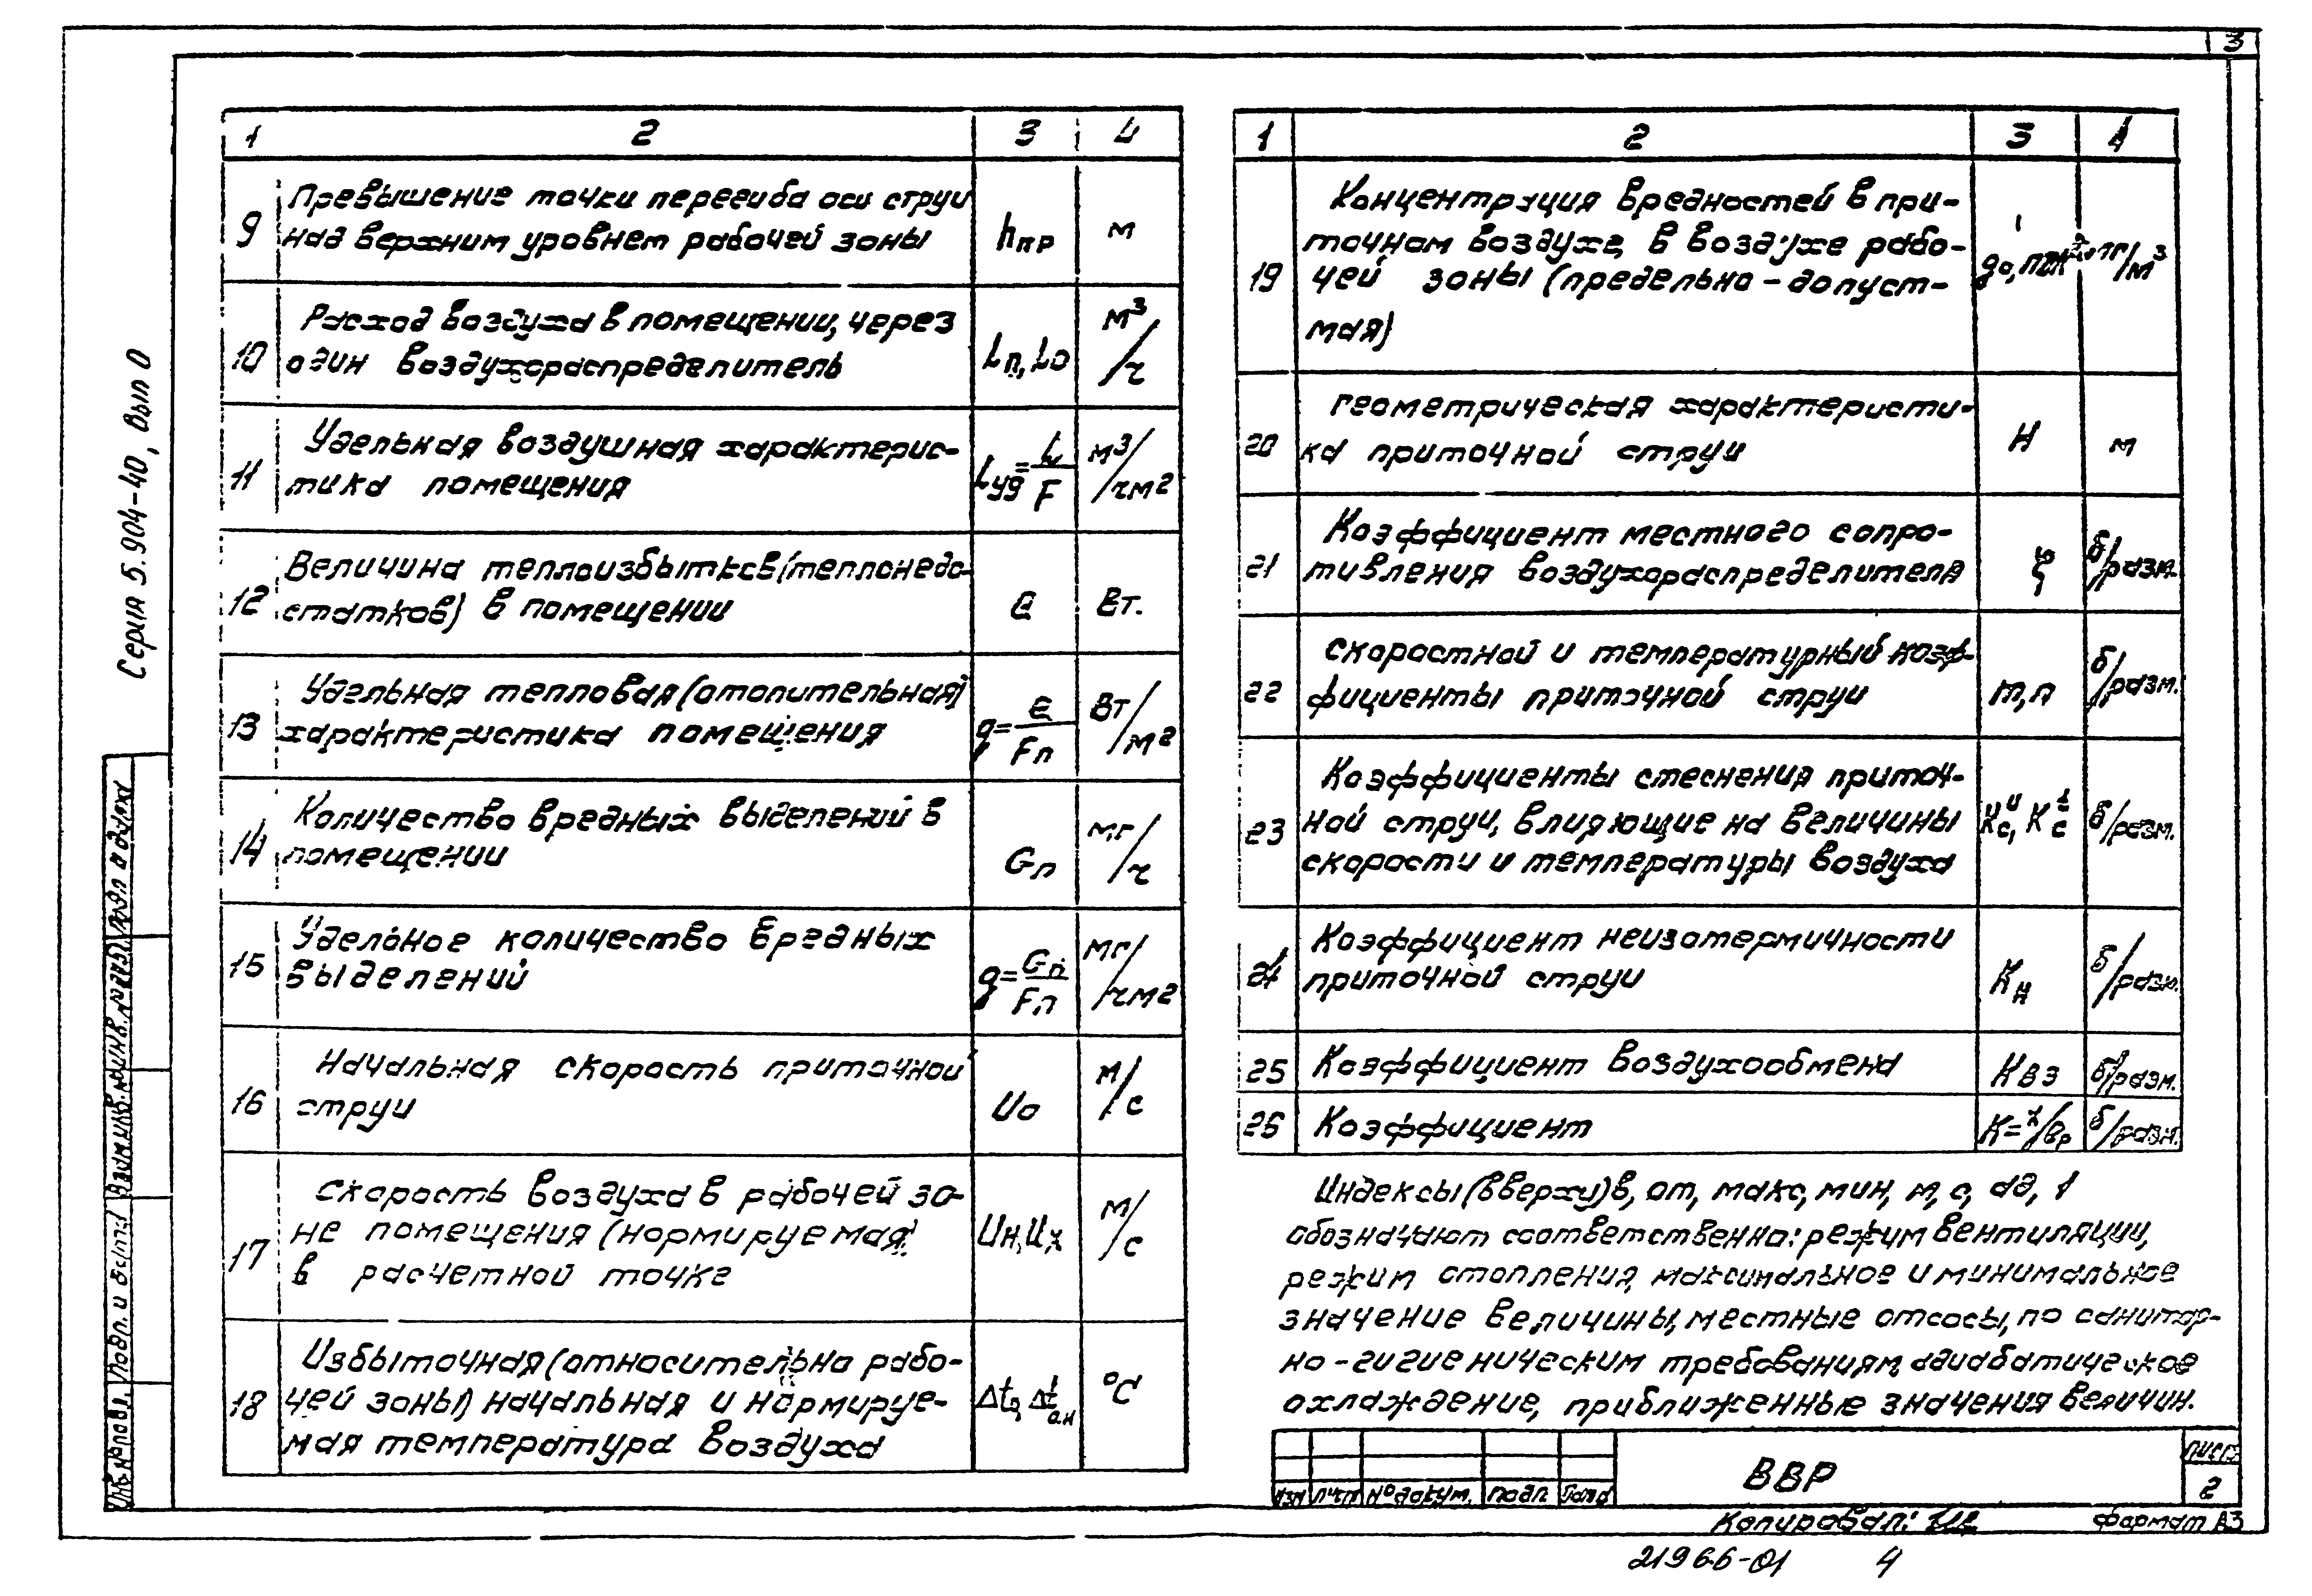 3
Серия 5.904-40, вып 0
1 2 3 4
9 Превышение точки перегиба оси струи
над верхним уровнем рабочей зоны hпр м
10 Расход воздуха в помещении, через
один воздухораспределитель Lп, Lо м³/ч
11 Удельная воздушная характерис-
тика помещения Lуд = L/F м³/чм²
12 Величина теплоизбытков (теплонедо-
статков) в помещении Q Вт.
13 Удельная тепловая (отопительная)
характеристика помещения q = Q/Fп Вт/м²
14 Количество вредных выделений в
помещении Gп мг/ч
15 Удельное количество вредных
выделений g = Gп/Fп мг/чм²
16 Начальная скорость приточной
струи Uо м/с
17 Скорость воздуха в рабочей зо-
не помещения (нормируемая)
в расчетной точке Uн, Uх м/с
18 Избыточная (относительно рабо-
чей зоны) начальная и нормируе-
мая температура воздуха Δtо, Δtо.н °С
1 2 3 4
19 Концентрация вредностей в при-
точном воздухе, в воздухе рабо-
чей зоны (предельно-допуст-
мая) мг/м³
20 Геометрическая характеристи-
ка приточной струи H м
21 Коэффициент местного сопро-
тивления воздухораспределителя ξ б/разм.
22 Скоростной и температурный коэф-
фициенты приточной струи m, n б/разм.
23 Коэффициенты стеснения приточ-
ной струи, влияющие на величины
скорости и температуры воздуха Kсᵘ, Kсᵗ б/разм.
24 Коэффициент неизотермичности
приточной струи Kн б/разм.
25 Коэффициент воздухообмена Kвз б/разм.
26 Коэффициент б/разм.
Индексы (вверху) в, от, макс, мин, м, с, ад, 1
обозначают соответственно: режим вентиляции,
режим отопления, максимальное и минимальное
значение величины, местные отсосы, по санитар-
но-гигиеническим требованиям, адиабатическое
охлаждение, приближенные значения величин.
Изм Лист № докум. Подп Дата
ВВР
Лист
2
Копировал:
Формат А3
21966-01 4
Инв. № подл. Подп. и дата Взам. инв. № Инв. № дубл. Подп и дата